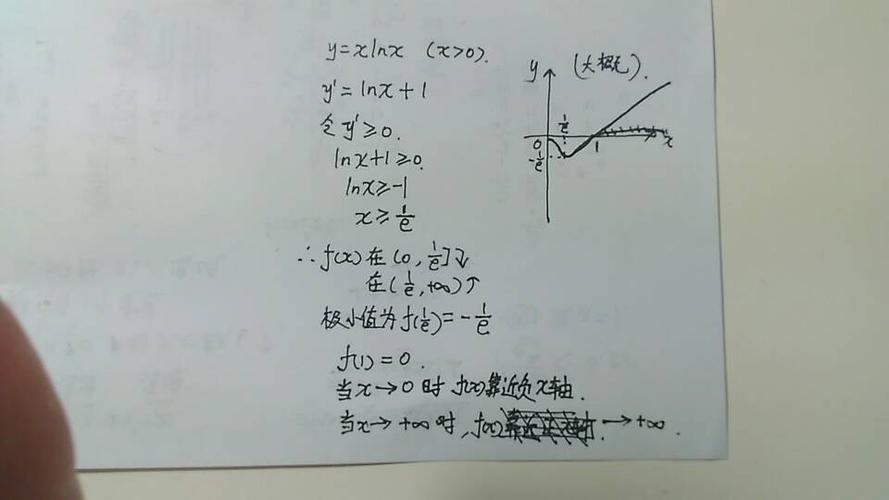 y=xlnx (x>0).
y'=lnx+1
令y'≥0.
lnx+1≥0.
lnx≥-1
x≥1/e
∴f(x)在(0,1/e]↓
在(1/e,+∞)↑
极小值为f(1/e)=-1/e
f(1)=0.
当x→0时f(x)靠近负x轴.
当x→+∞时,f(x) →+∞.
y (大概).
1/e
0 1 x
-1/e